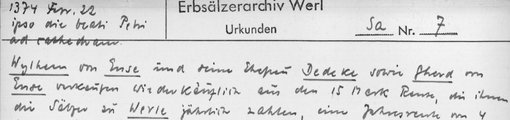 1374 Febr. 22
Erbsälzerarchiv Werl
ipso die beati Petri
ad cathedram.
Urkunden
Sa Nr. 7
Wylhem von Ense und seine Ehefrau Dedeke sowie Gherd von
Ense verkaufen wiederkäuflich aus den 15 Mark Rente, die ihnen
die Sälzer zu Werle jährlich zahlen, eine Jahresrente von 4